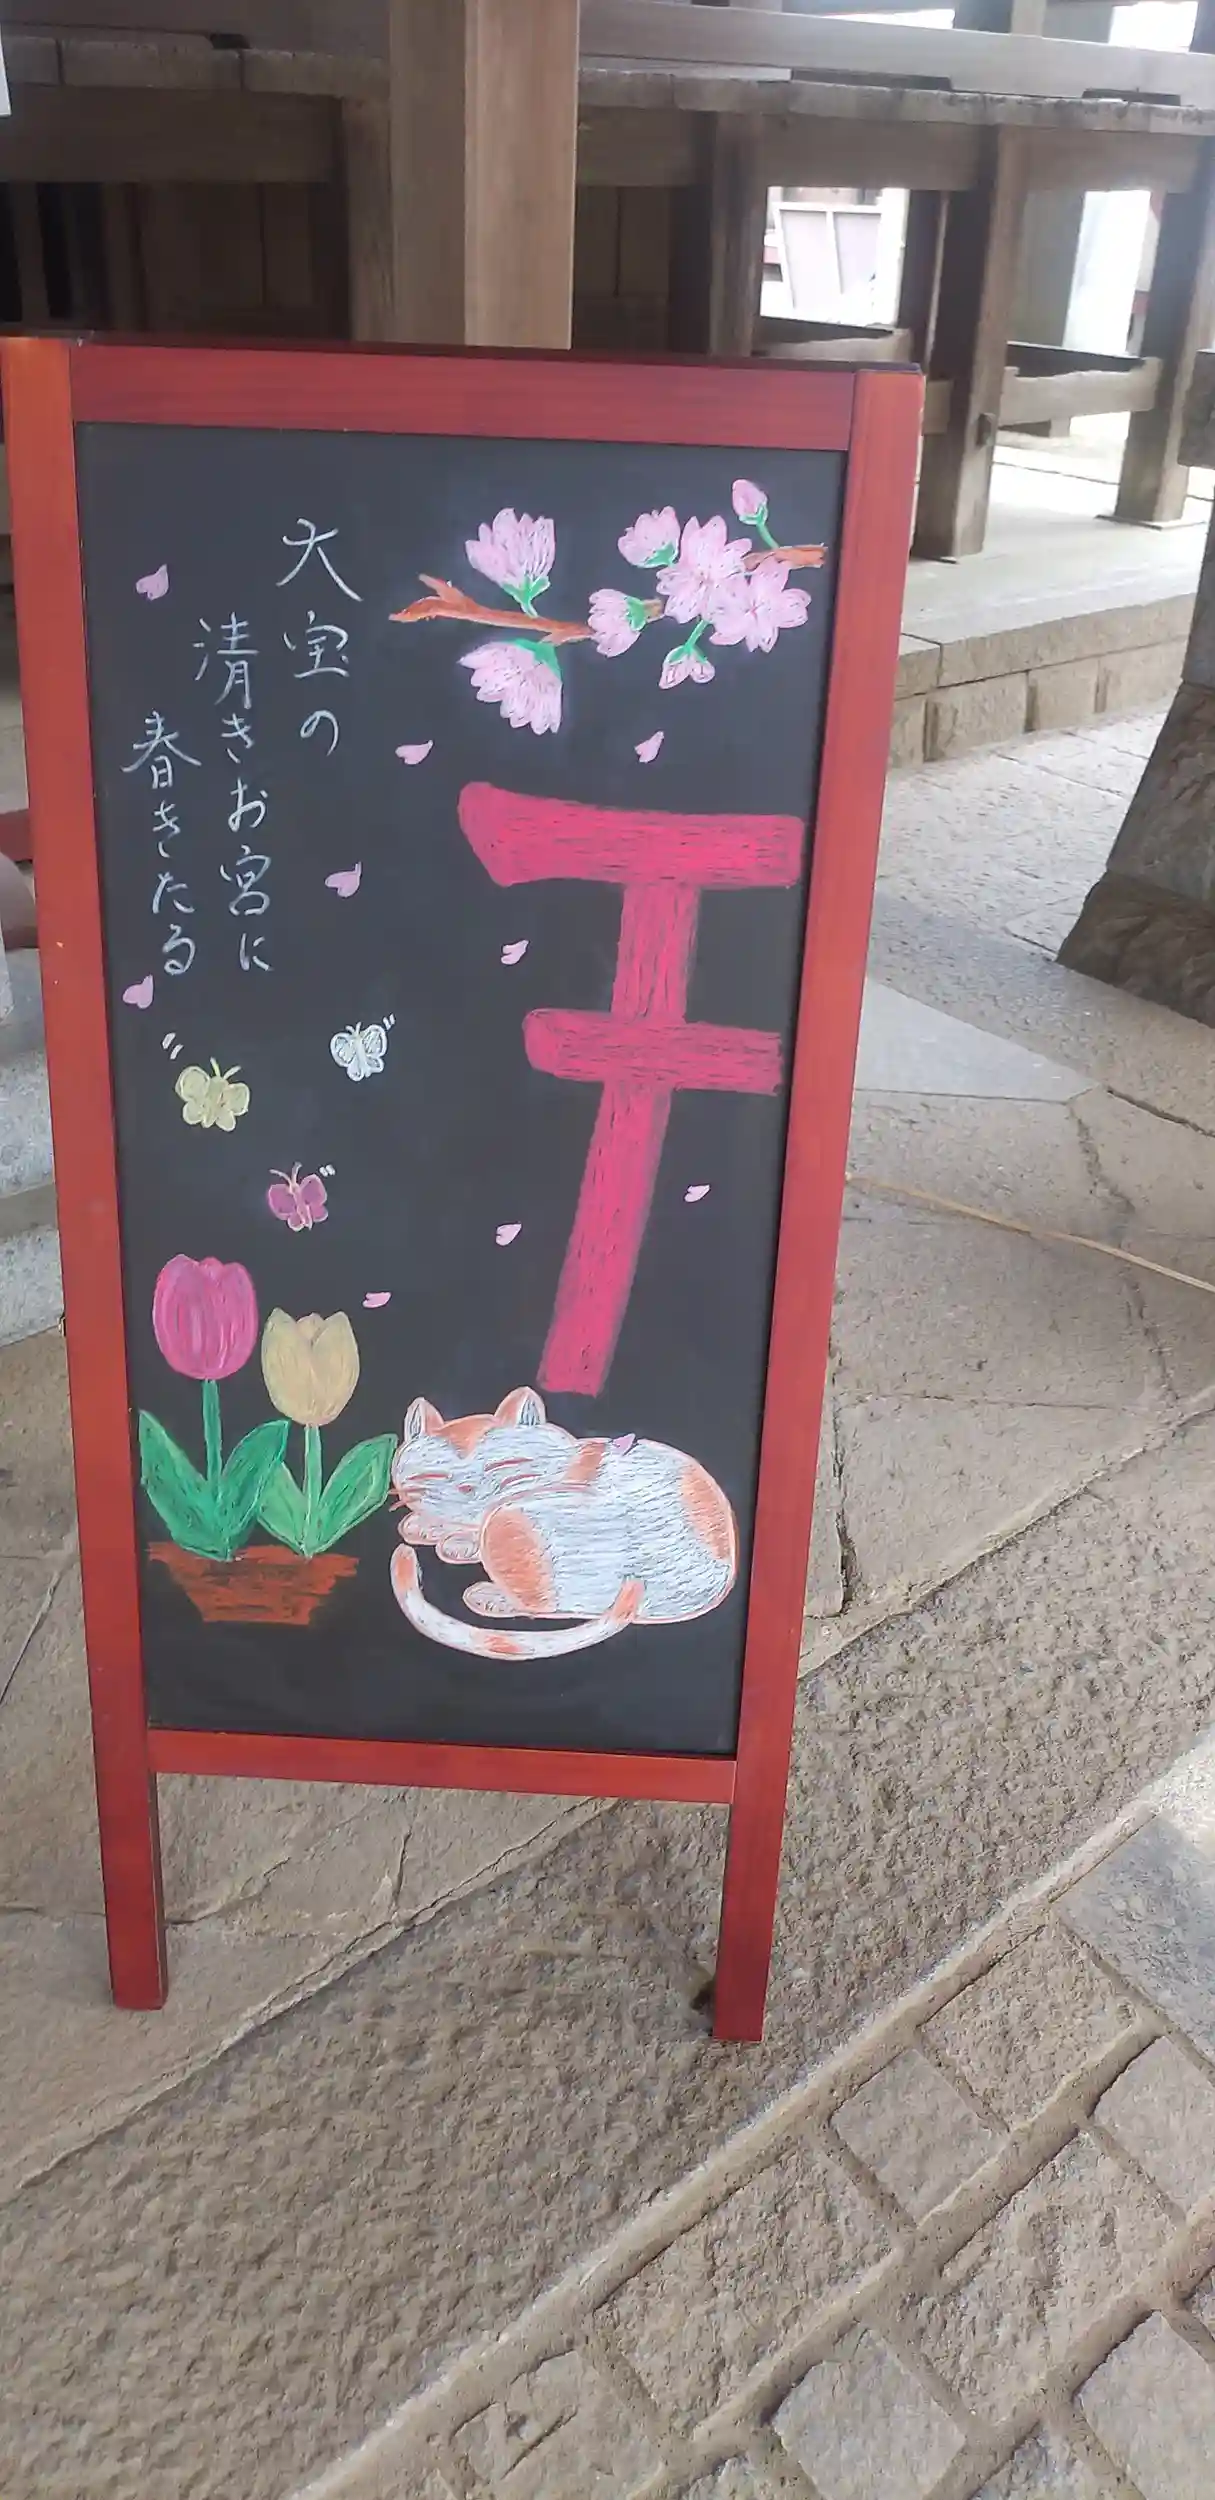 大宝の
清きお宮に
春きたる